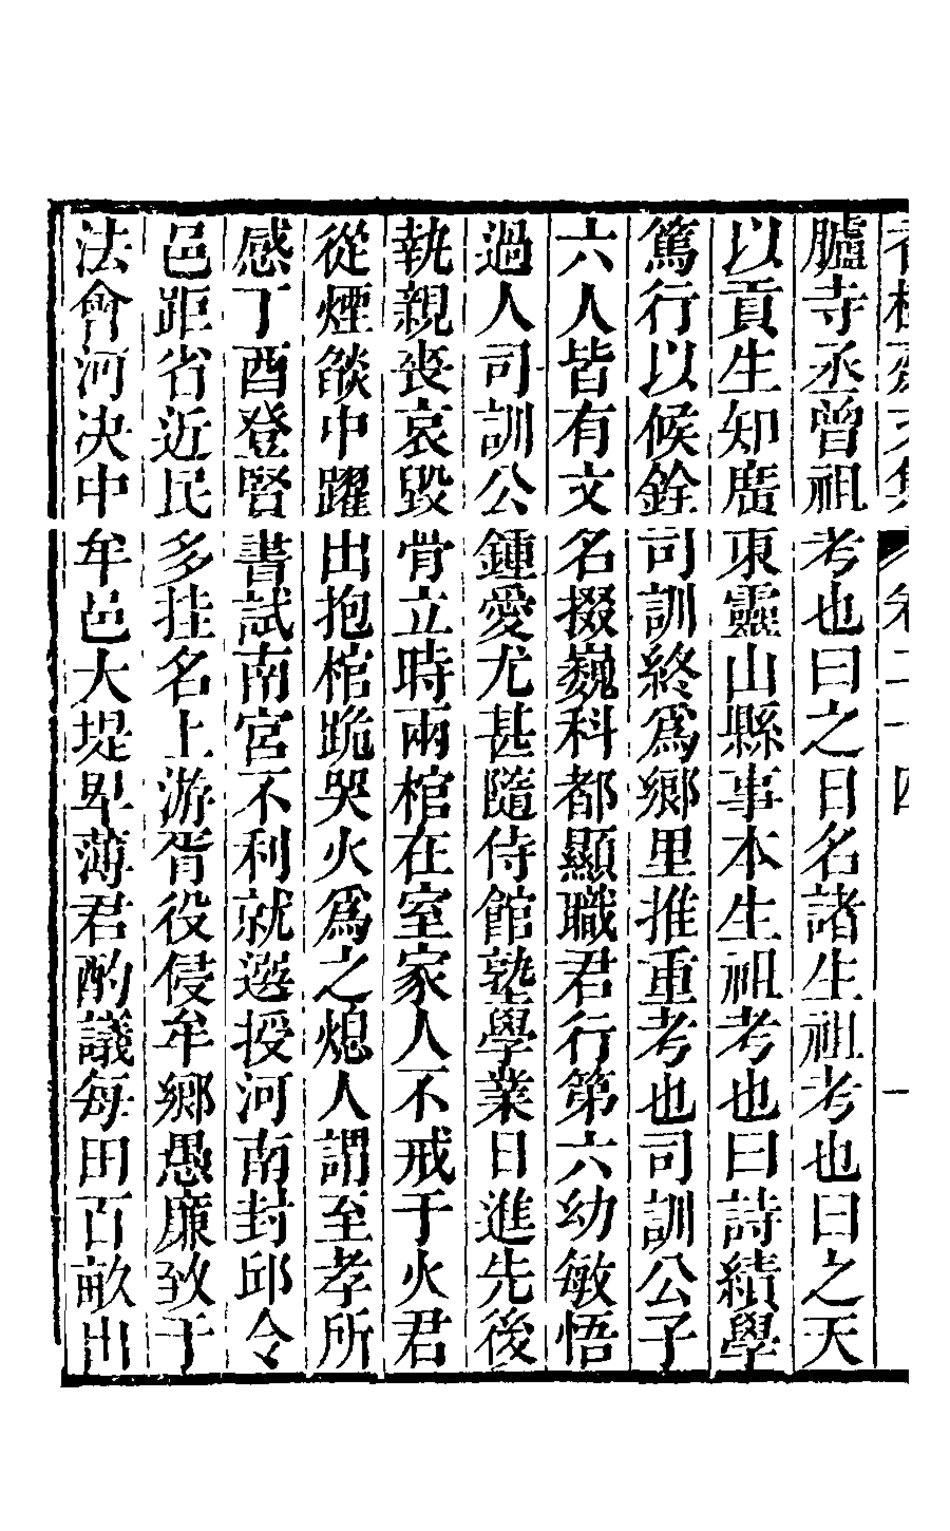 香樹齋文集 卷二十四 一
臚寺丞曾祖考也曰之日名諸生祖考也曰之天
以貢生知廣東靈山縣事本生祖考也曰詩績學
篤行以候銓司訓終爲鄉里推重考也司訓公子
六人皆有文名掇巍科都顯職君行第六幼敏悟
過人司訓公鍾愛尤甚隨侍館塾學業日進先後
執親喪哀毀骨立時兩棺在室家人不戒于火君
從煙燄中躍出抱棺跪哭火爲之熄人謂至孝所
感丁酉登賢書試南宮不利就選授河南封邱令
邑距省近民多挂名上游胥役侵牟鄉愚廉致于
法會河决中牟邑大堤卑薄君酌議每田百畝出